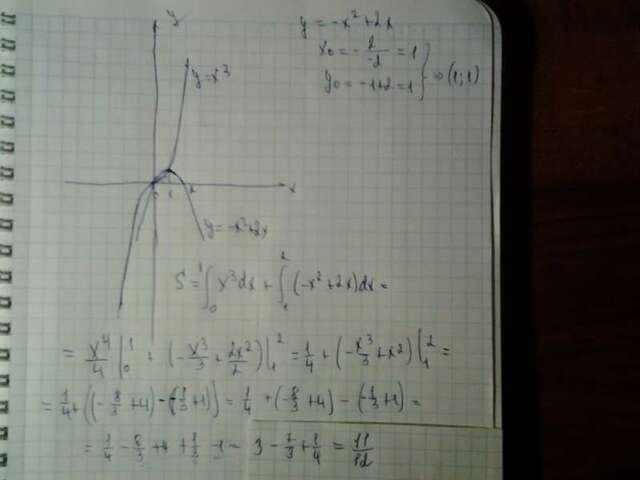 y
y = -x² + 2x
x₀ = -2/-2 = 1
y₀ = -1+2 = 1 } ⇒ (1; 1)
y = x³
0 1 2 x
y = -x²+2x
S = ∫₀¹ x³dx + ∫₁² (-x² + 2x)dx =
= x⁴/4 |₀¹ + (-x³/3 + 2x²/2) |₁² = 1/4 + (-x³/3 + x²) |₁² =
= 1/4 + ((-8/3 + 4) - (-1/3 + 1)) = 1/4 + (-8/3 + 4) - (-1/3 + 1) =
= 1/4 - 8/3 + 4 + 1/3 - 1 = 3 - 7/3 + 1/4 = 11/12